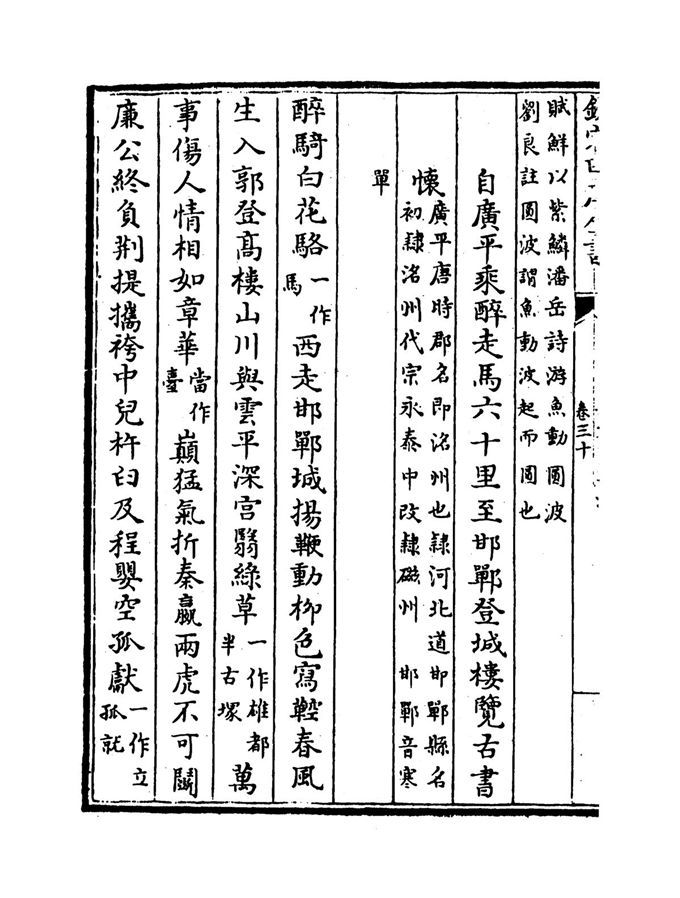 欽定四庫全書
卷三十
賦鮮以紫鱗潘岳詩游魚動圓波
劉良註圓波謂魚動波起而圓也
自廣平乘醉走馬六十里至邯鄲登城樓覽古書
懷廣平唐時郡名即洺州也隸河北道邯鄲縣名
初隸洺州代宗永泰中改隸磁州 邯鄲音寒
單
醉騎白花駱一作馬西走邯鄲城揚鞭動柳色寫鞚春風
生入郭登高樓山川與雲平深宮翳綠草一作雄都半古塚萬
事傷人情相如章華當作臺巔猛氣折秦嬴兩虎不可鬬
廉公終負荆提攜袴中兒杵臼及程嬰空孤獻一作立孤就